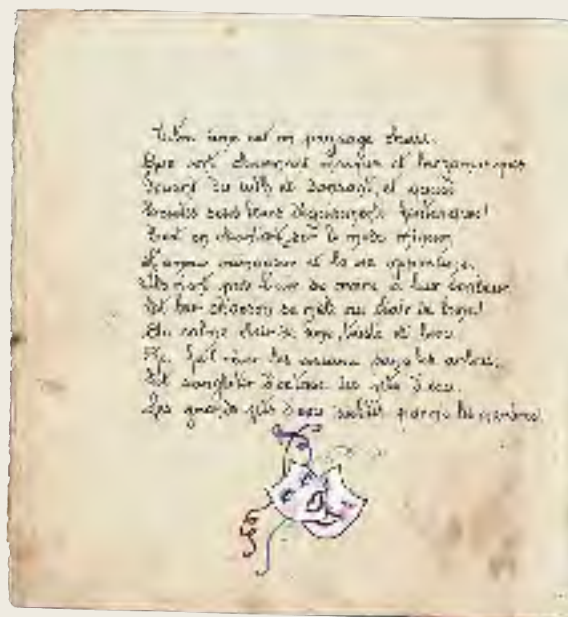 Votre âme est un paysage choisi
Que vont charmant masques et bergamasques
Jouant du luth et dansant et quasi
Tristes sous leurs déguisements fantasques!
Tout en chantant sur le mode mineur
L'amour vainqueur et la vie opportune,
Ils n'ont pas l'air de croire à leur bonheur
Et leur chanson se mêle au clair de lune!
Au calme clair de lune, triste et beau
Qui fait rêver les oiseaux dans les arbres,
Et sangloter d'extase les jets d'eau,
Les grands jets d'eau sveltes parmi les marbres!